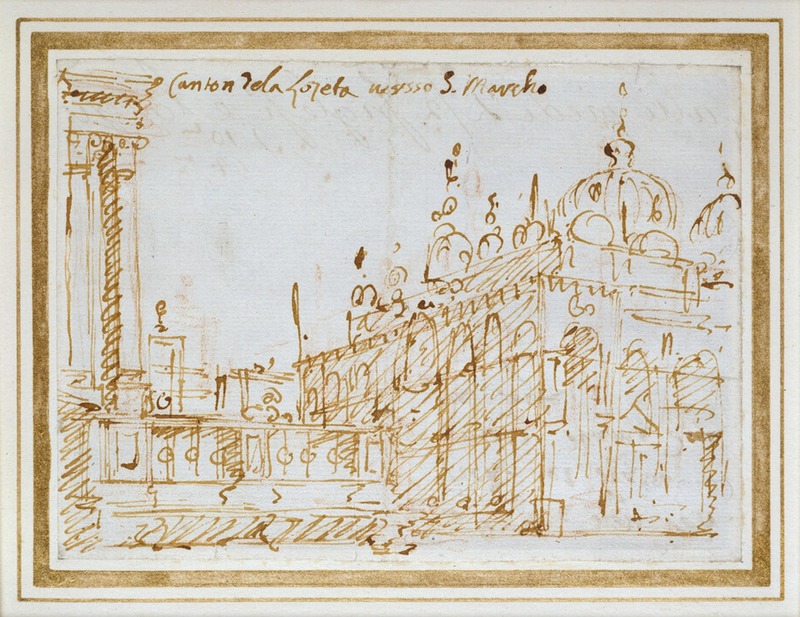 Canton dela Lozeta versso S. Marcho